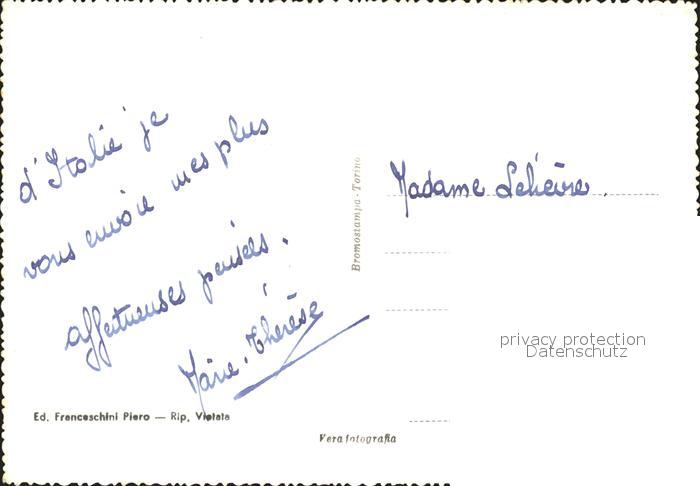 d'Italie je
vous envoie mes plus
affectueuses pensées.
Marie-Thérèse
Ed. Franceschini Piero — Rip. Vietata
Bromostampa - Torino
Vera fotografia
Madame Lelièvre.
privacy protection
Datenschutz